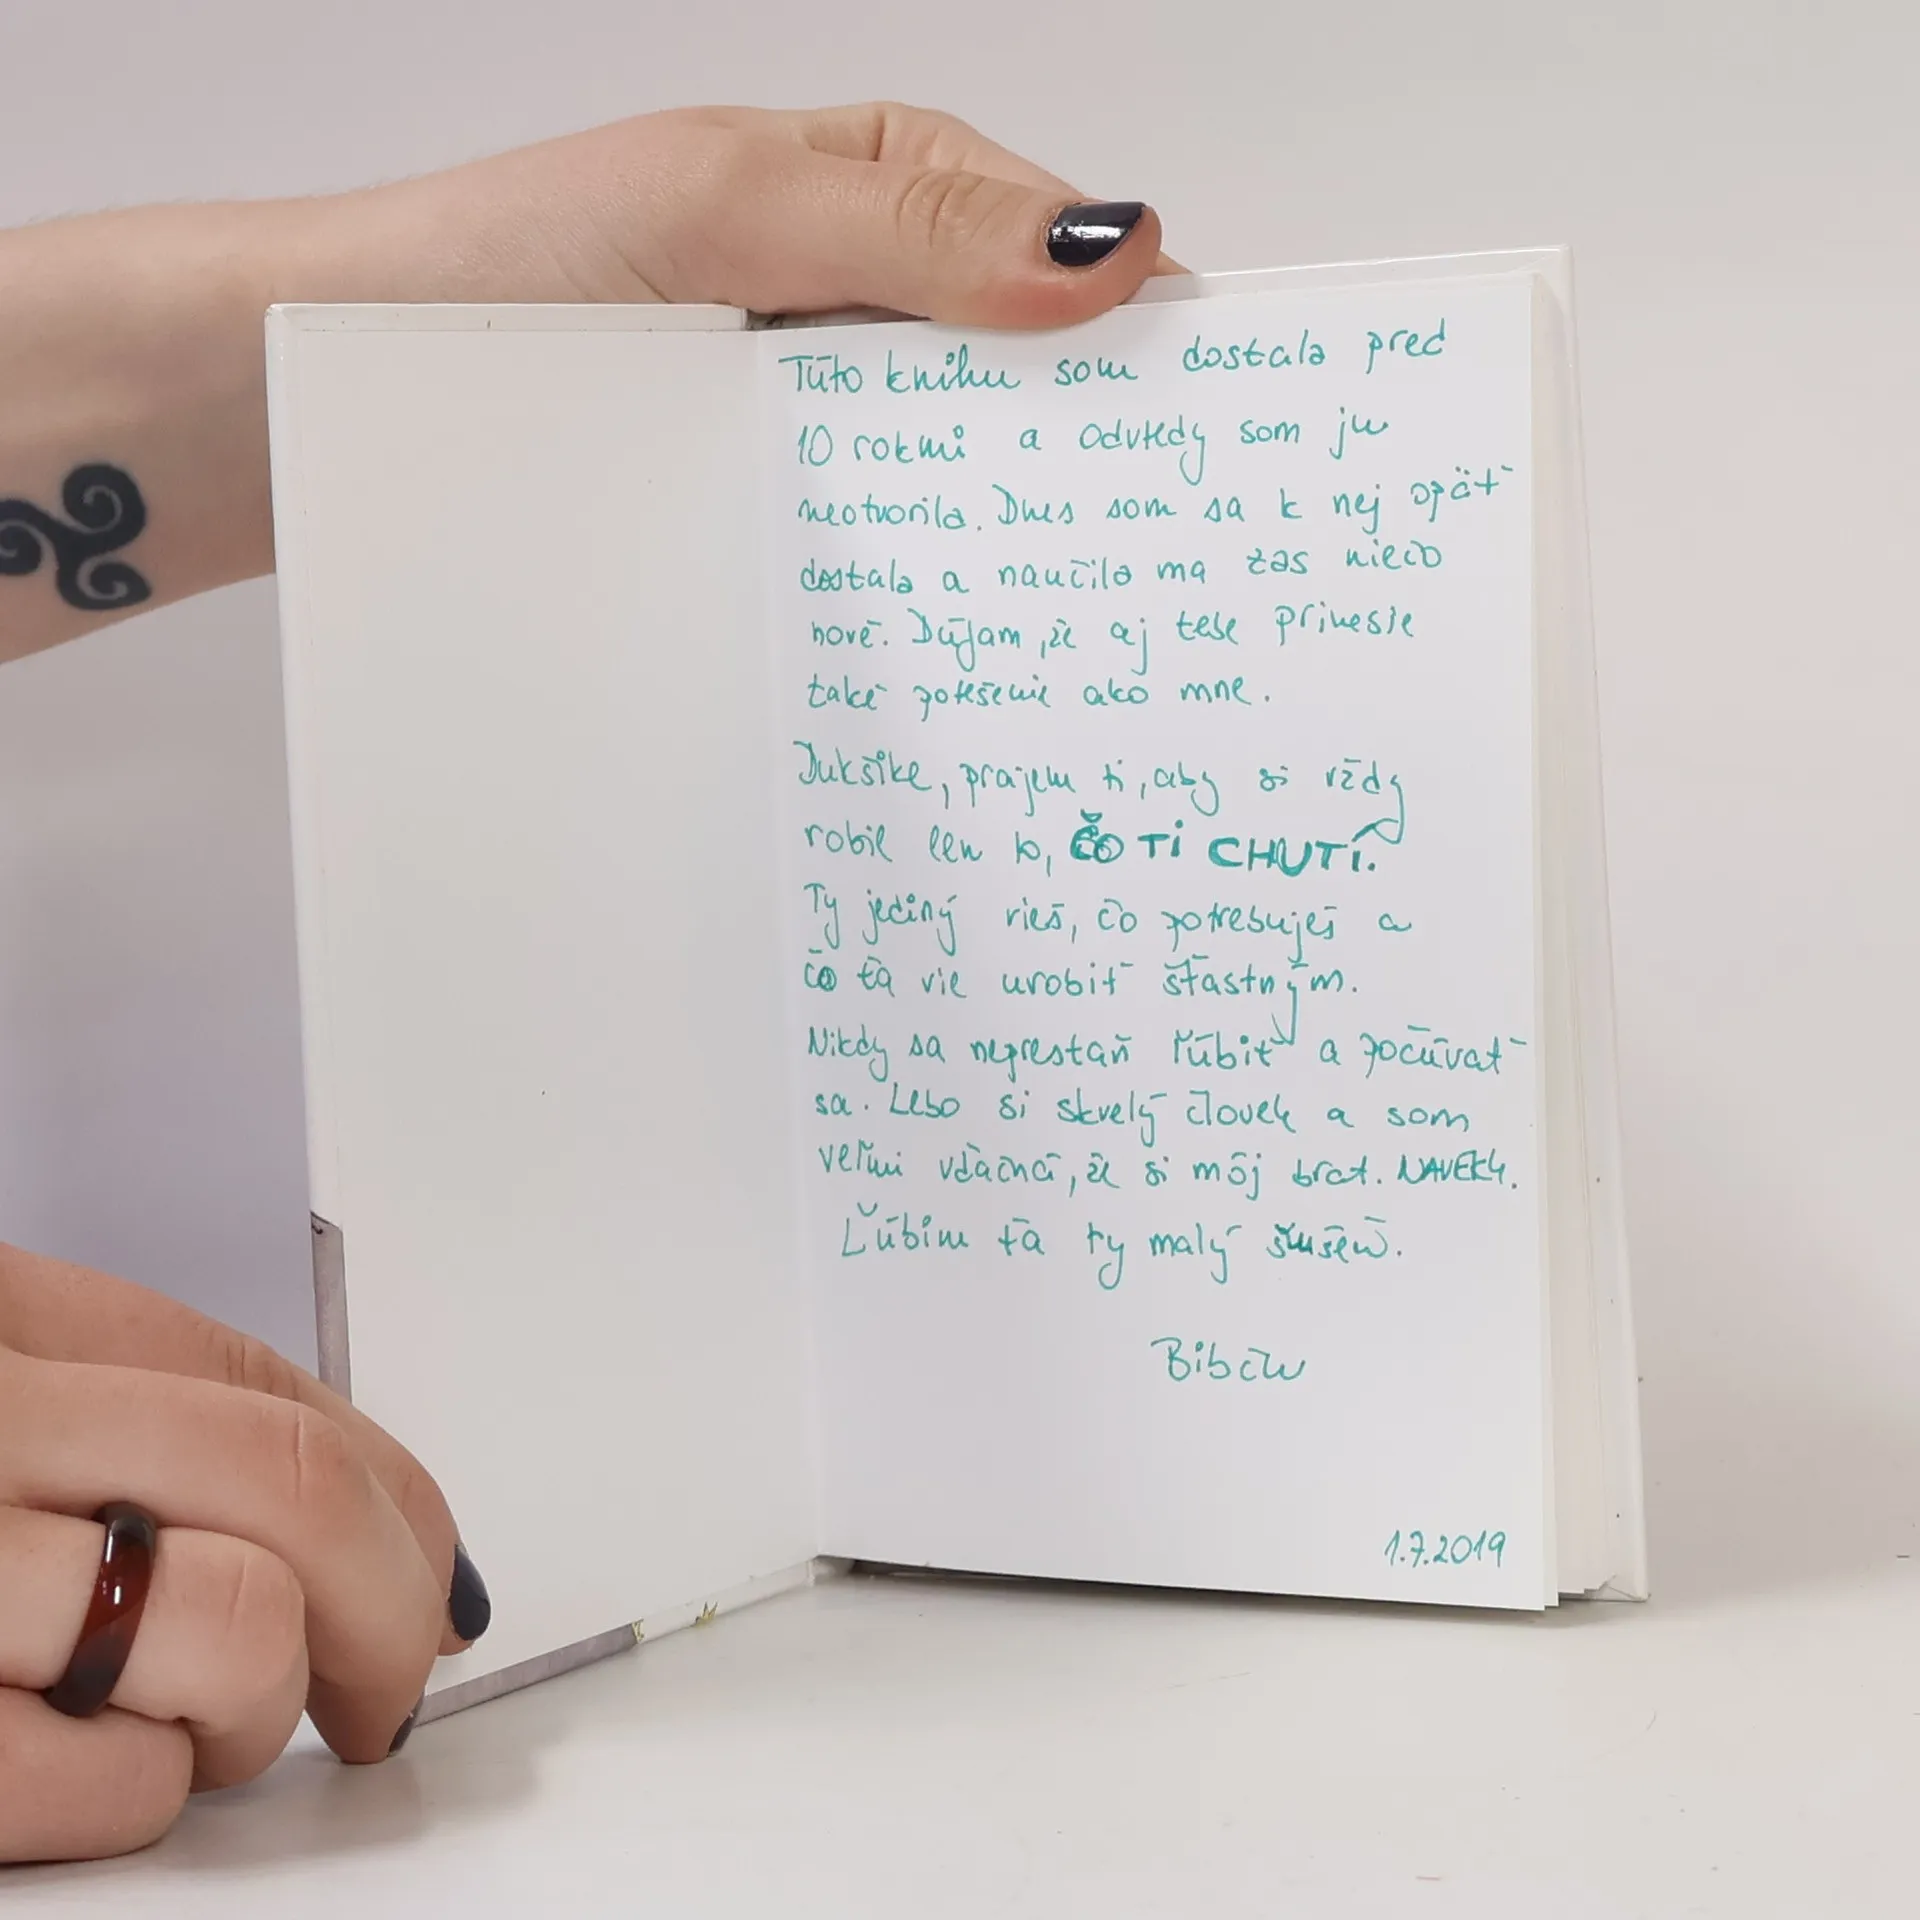 Túto knihu som dostala pred
10 rokmi a odvtedy som ju
neotvorila. Dnes som sa k nej opäť
dostala a naučila ma zas niečo
nové. Dúfam, že aj tebe prinesie
také potešenie ako mne.
Dukšike, prajem ti, aby si vždy
robil len to, ČO TI CHUTÍ.
Ty jediný vieš, čo potrebuješ a
čo ťa vie urobiť šťastným.
Nikdy sa neprestaň ľúbiť a počúvať
sa. Lebo si skvelý človek a som
veľmi vďačná, že si môj brat. NAVEKY.
Ľúbim ťa ty malý
1.7.2019